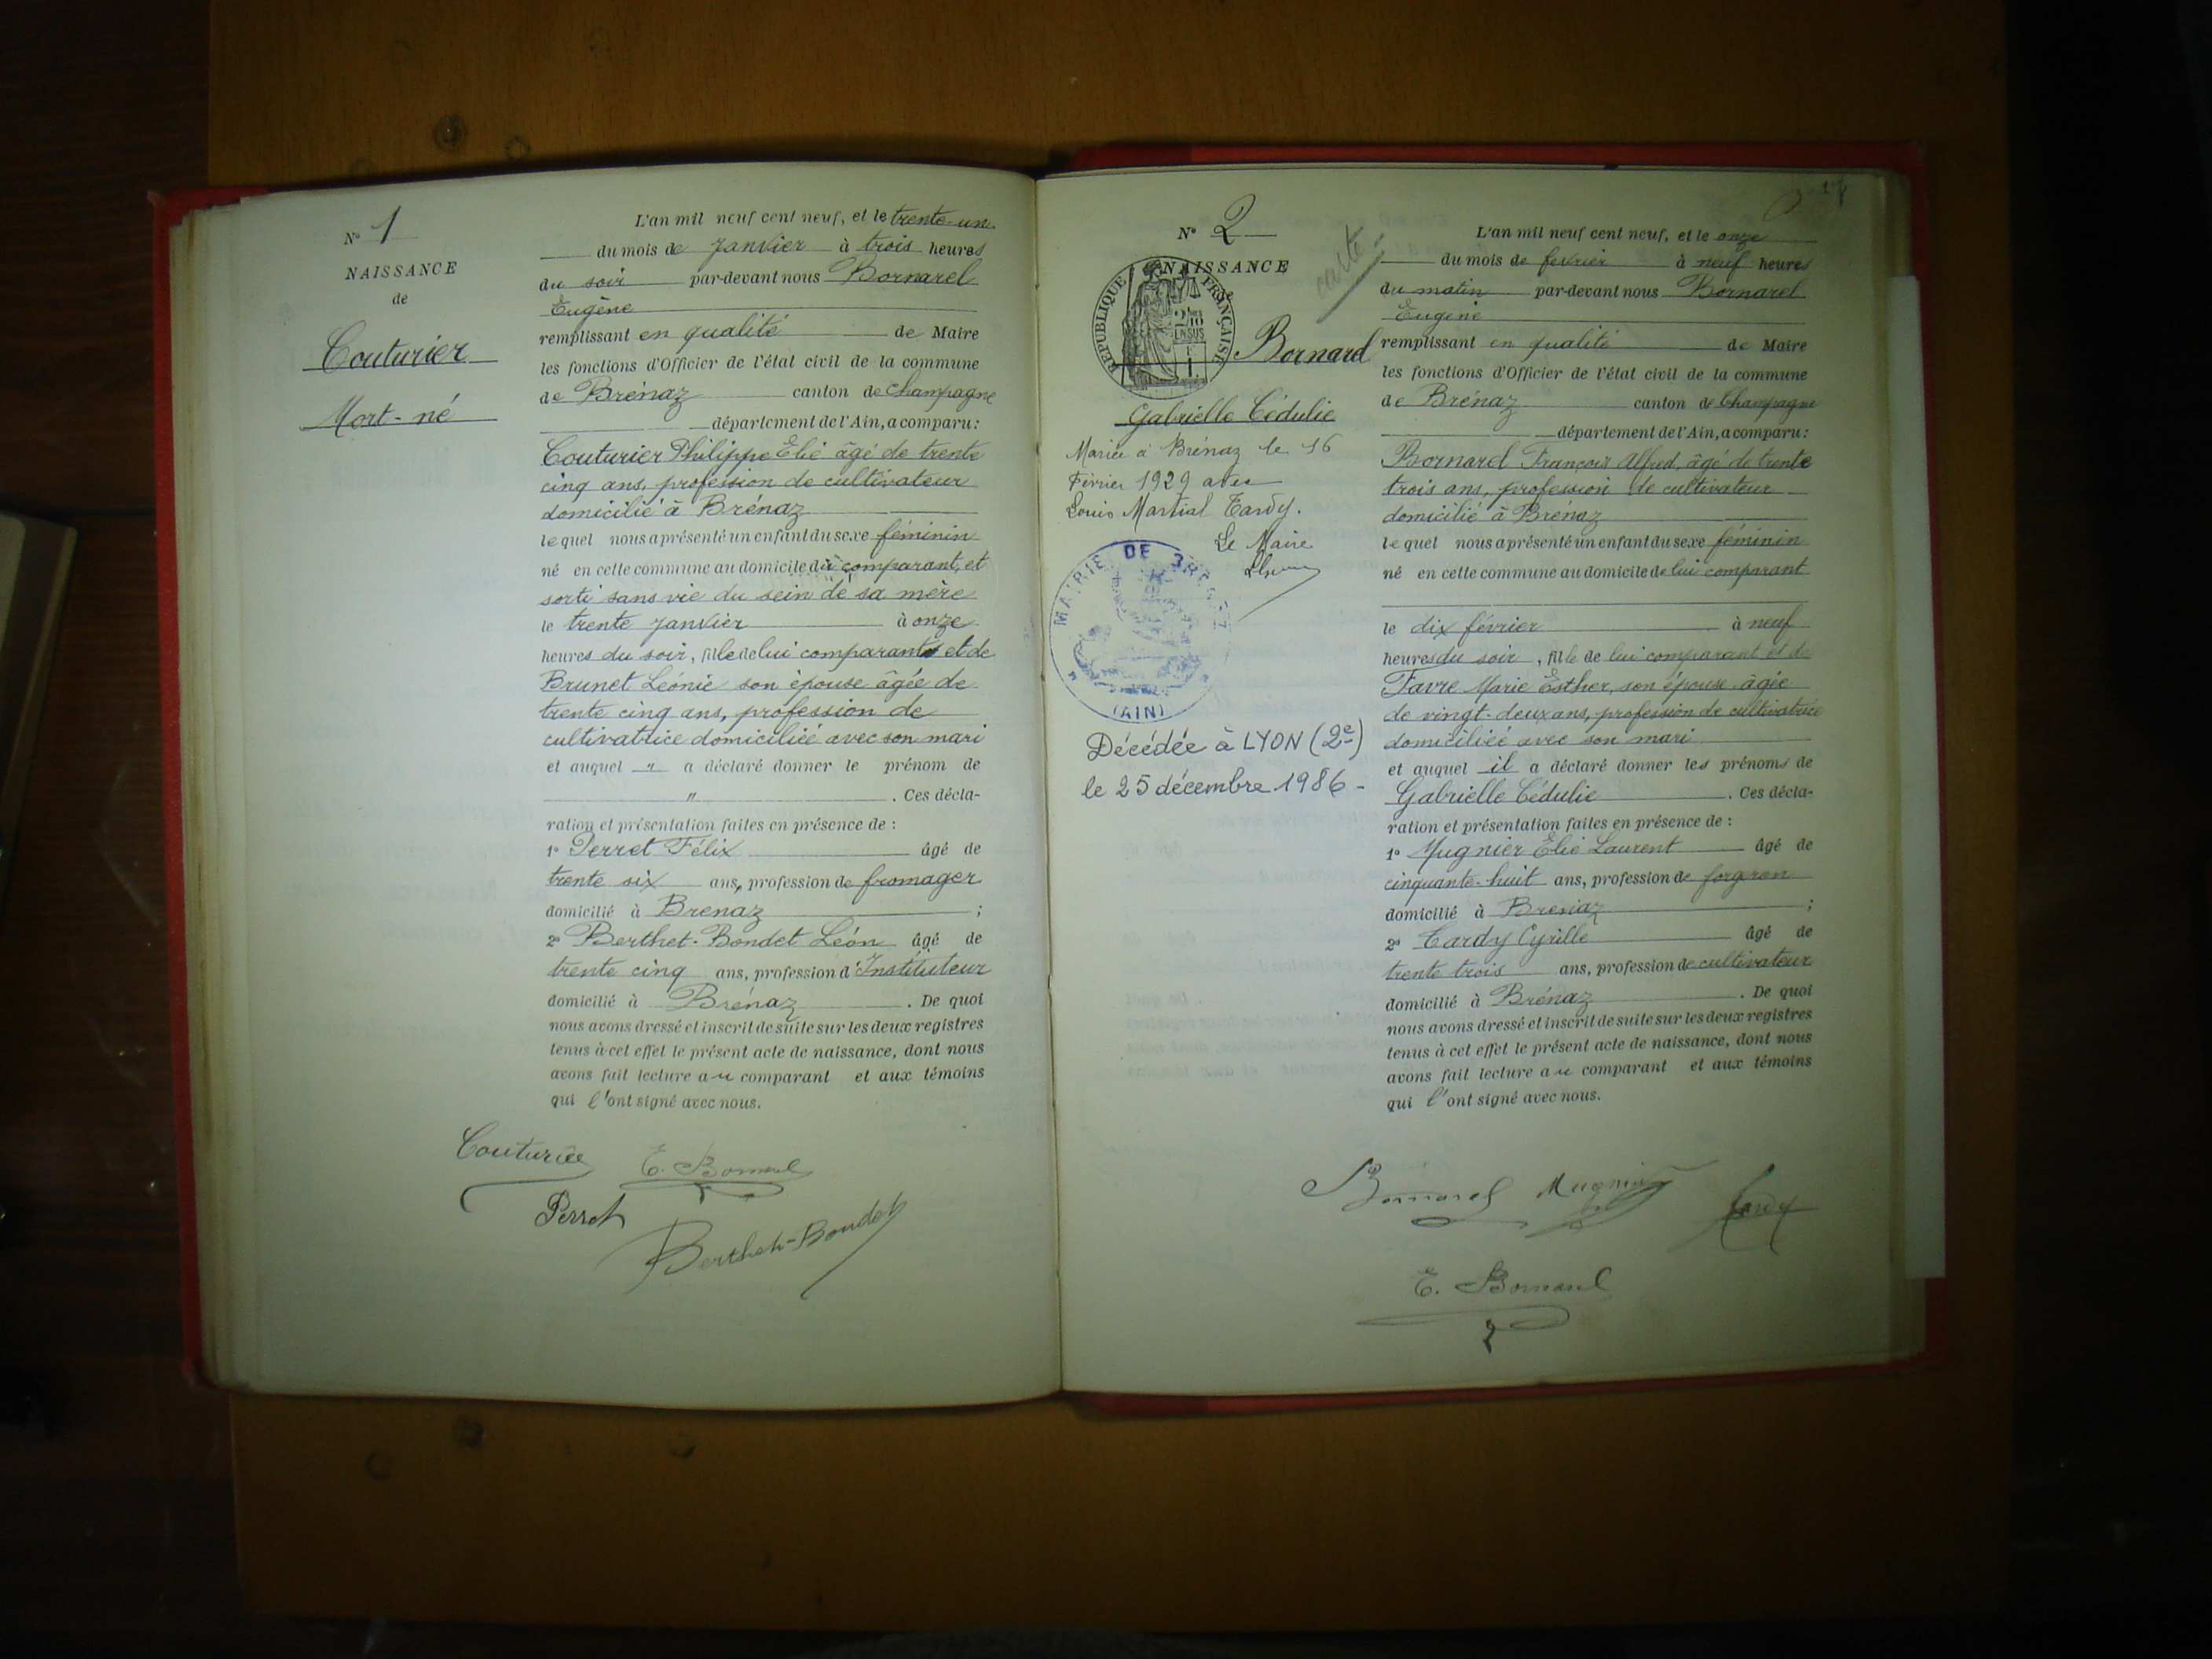 N° 1
NAISSANCE
de
Couturier
Mort-né
L'an mil neuf cent neuf, et le trente-un
du mois de janvier à trois heures
du soir par-devant nous Bornarel
Eugène
remplissant en qualité de Maire
les fonctions d'Officier de l'état civil de la commune
de Brénaz canton de Champagne
département de l'Ain, a comparu:
Couturier Philippe Elie âgé de trente
cinq ans, profession de cultivateur
domicilié à Brénaz
lequel nous a présenté un enfant du sexe féminin
né en cette commune au domicile du comparant, et
sorti sans vie du sein de sa mère
le trente janvier à onze
heures du soir, fille de lui comparant et de
Brunet Léonie son épouse âgée de
trente cinq ans, profession de
cultivatrice domiciliée avec son mari
et auquel " a déclaré donner le prénom de
" . Ces décla-
ration et présentation faites en présence de :
1° Perret Félix âgé de
trente six ans, profession de fromager
domicilié à Brenaz ;
2° Berthet-Bondet Léon âgé de
trente cinq ans, profession d'Instituteur
domicilié à Brénaz . De quoi
nous avons dressé et inscrit de suite sur les deux registres
tenus à cet effet le présent acte de naissance, dont nous
avons fait lecture au comparant et aux témoins
qui l'ont signé avec nous.
Couturier E. Bornarel
Perret
Berthet-Bondet
N° 2
NAISSANCE
RÉPUBLIQUE FRANÇAISE
2/10
EN SUS
Bornarel
Gabrielle Cédulie
Mariée à Brénaz le 16
Février 1929 avec
Louis Martial Tardy.
Le Maire
MAIRIE DE BRÉNAZ
(AIN)
Décédée à LYON (2e)
le 25 décembre 1986 -
L'an mil neuf cent neuf, et le onze
du mois de février à neuf heures
du matin par-devant nous Bornarel
Eugène
remplissant en qualité de Maire
les fonctions d'Officier de l'état civil de la commune
de Brénaz canton de Champagne
département de l'Ain, a comparu:
Bornarel François Alfred, âgé de trente
trois ans, profession de cultivateur
domicilié à Brénaz
lequel nous a présenté un enfant du sexe féminin
né en cette commune au domicile de lui comparant
le dix février à neuf
heures du soir, fille de lui comparant et de
Favre Marie Esther, son épouse âgée
de vingt-deux ans, profession de cultivatrice
domiciliée avec son mari
et auquel il a déclaré donner les prénoms de
Gabrielle Cédulie . Ces décla-
ration et présentation faites en présence de :
1° Mugnier Elie Laurent âgé de
cinquante-huit ans, profession de forgeron
domicilié à Brenaz ;
2° Tardy Cyrille âgé de
trente trois ans, profession de cultivateur
domicilié à Brénaz . De quoi
nous avons dressé et inscrit de suite sur les deux registres
tenus à cet effet le présent acte de naissance, dont nous
avons fait lecture au comparant et aux témoins
qui l'ont signé avec nous.
Bornarel Mugnier Tardy
E. Bornarel